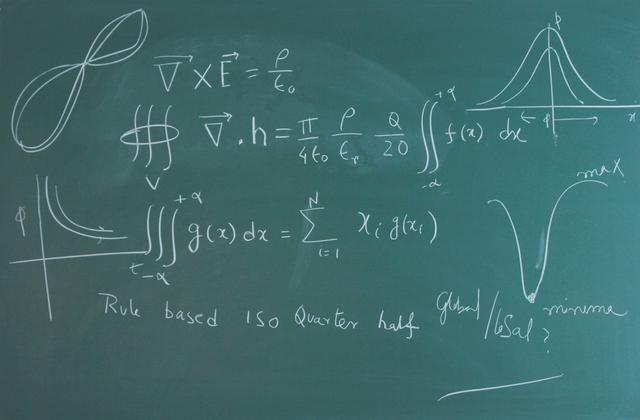 ∇⃗ × E⃗ = ρ/ε₀
∭ ∇⃗ . h = π/4ε₀ ρ/εᵣ Q/20 ∬ f(x) dx
V
+α
-α
ρ
x
φ
t
∭ g(x) dx = ∑ xᵢ g(xᵢ)
+α
-α
N
i=1
max
Rule based ISO Quarter half
Global / loSal ?
minima